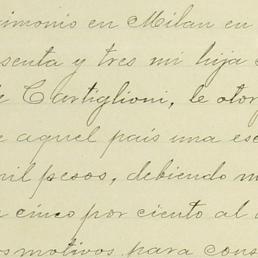 rimonio en Milan en
senta y tres mi hija
de Castiglioni, le otor
e aquel país una es
mil pesos, debiendo
cinco por ciento al
os motivos para cons